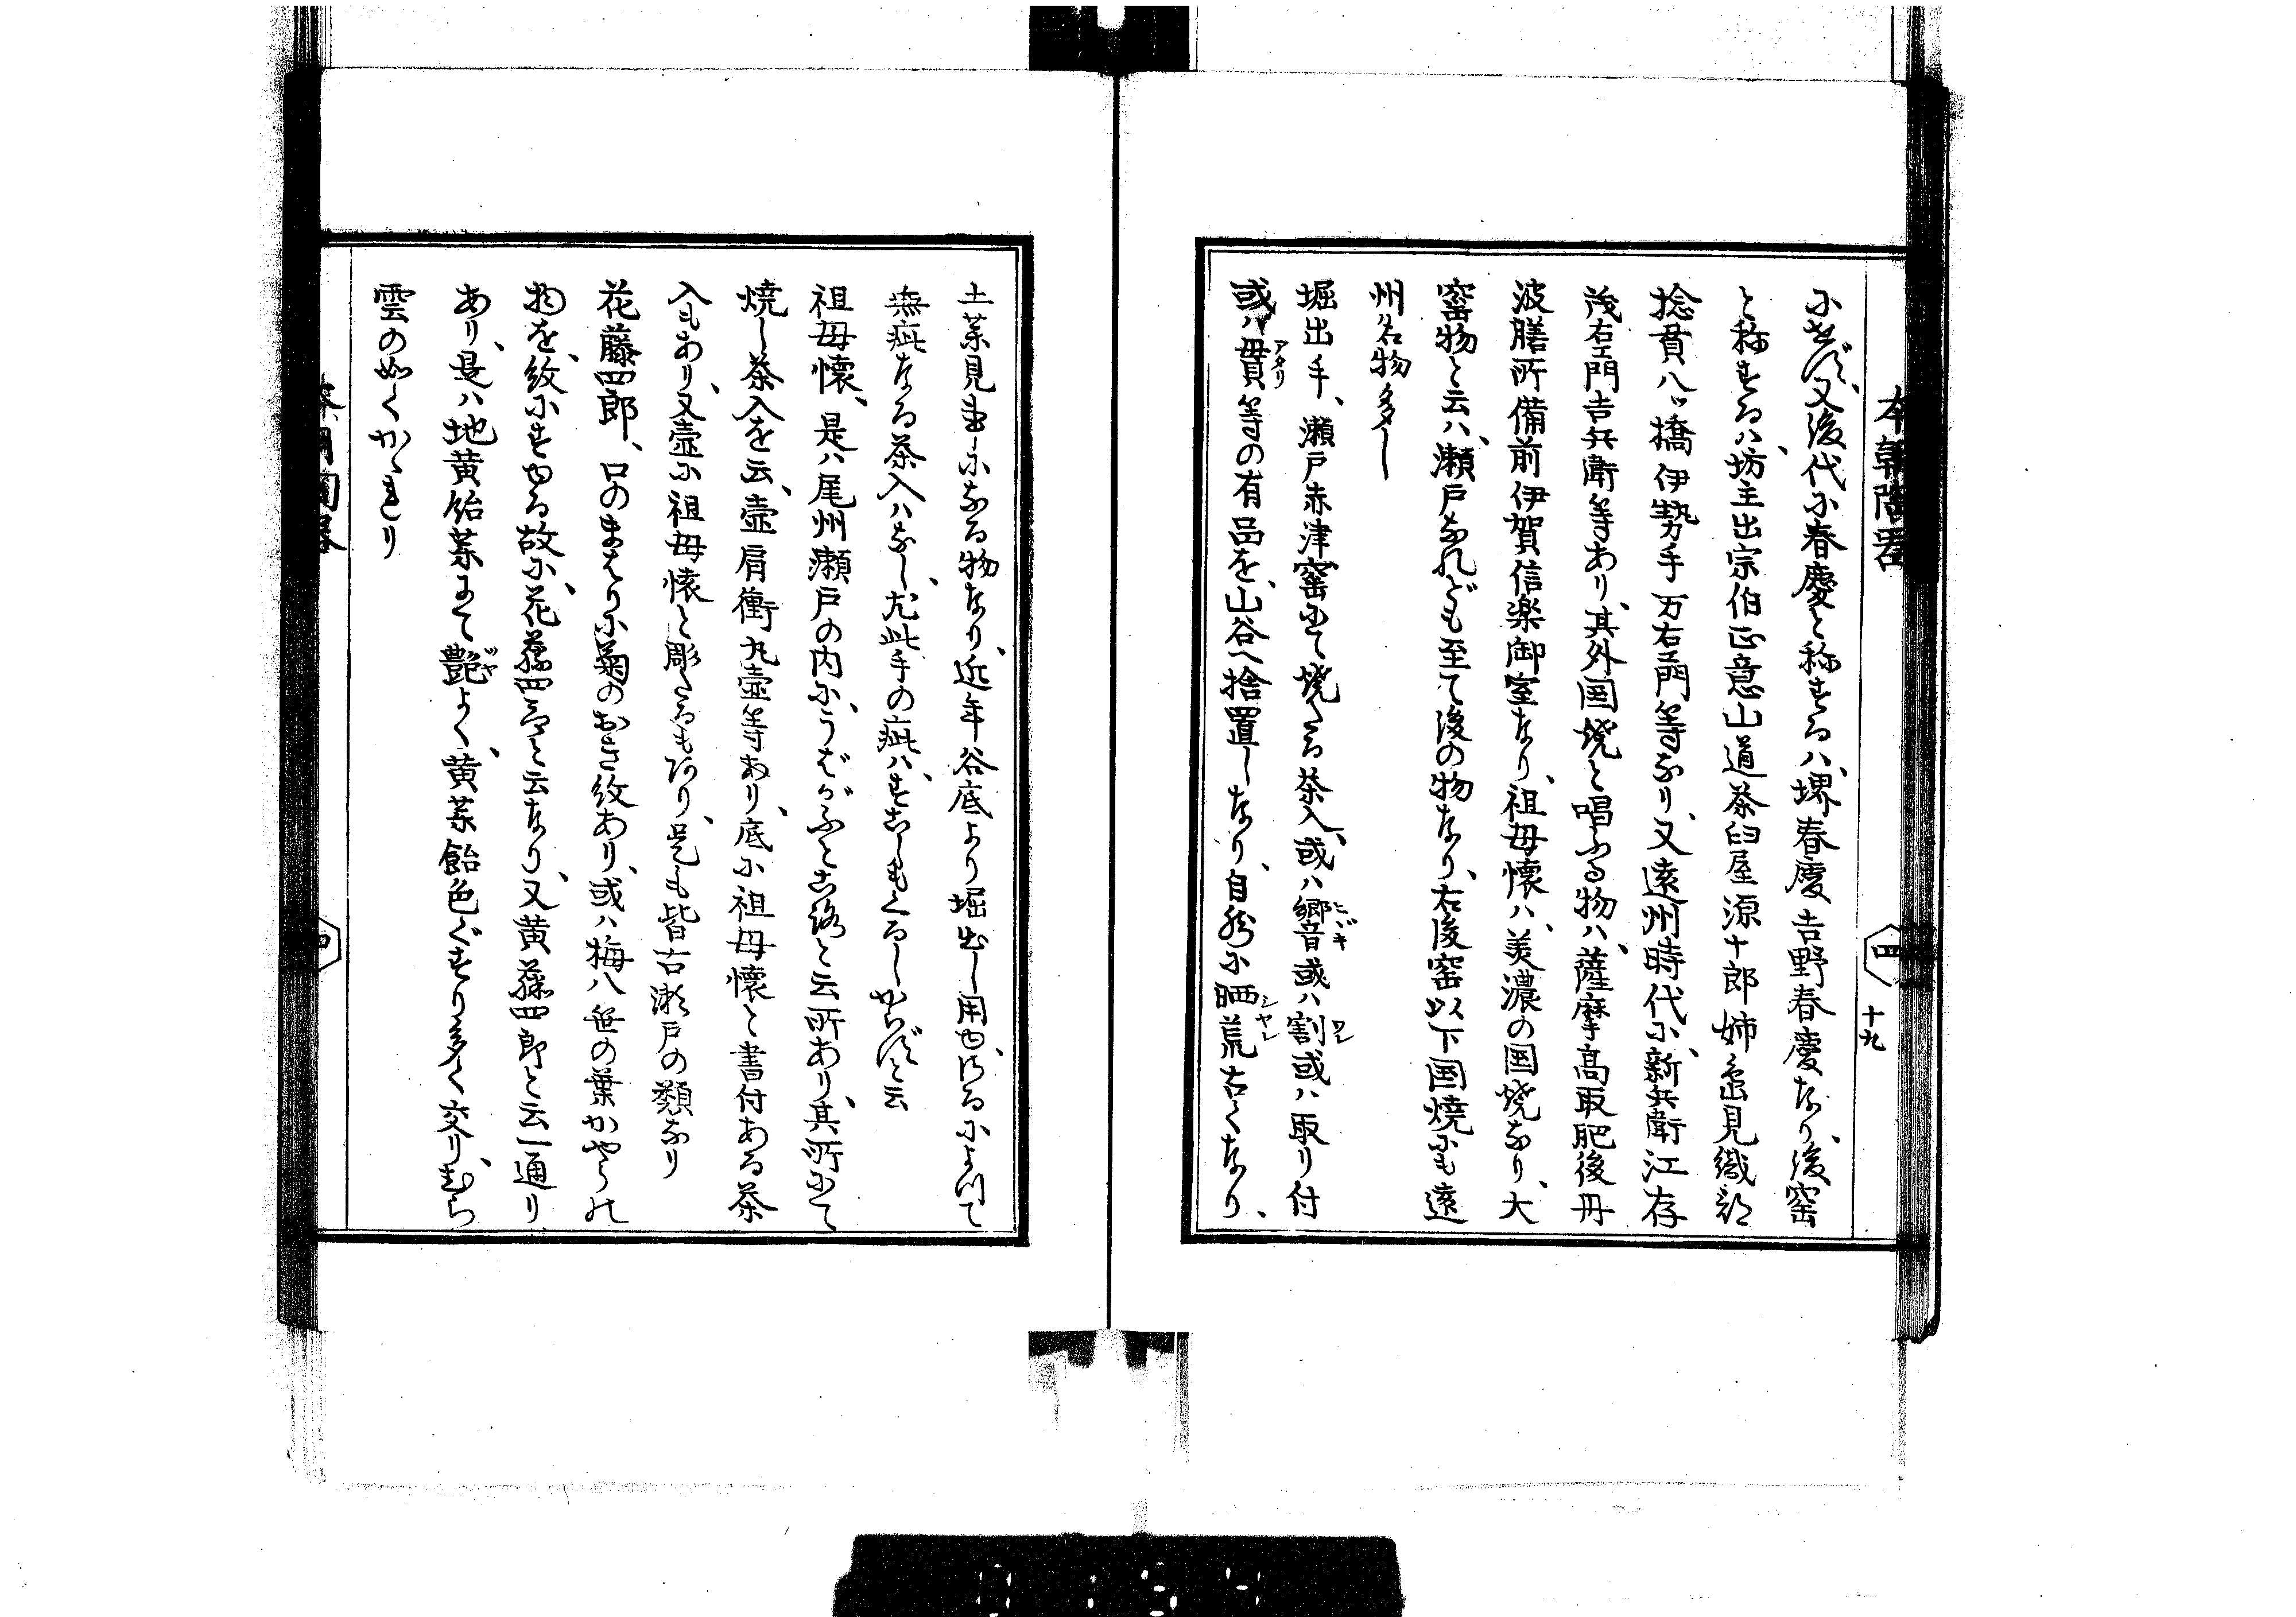 本朝陶器
四
十九
小せず、又後代に春慶と称するハ、堺春慶吉野春慶なり、後窯
と称するハ、坊主出宗伯正意山道茶臼屋源十郎姉 見織部
捻貫八ッ橋伊勢手万右衛門等なり、又遠州時代に、新兵衛江存
茂右衛門吉兵衛等あり、其外国焼と唱ふる物ハ、薩摩高取肥後丹
波膳所備前伊賀信楽御室なり、祖母懐ハ、美濃の国焼なり、大
窯物と云ハ、瀬戸なれども至て後の物なり、右後窯以下国焼にも遠
州名物多し
堀出手、瀬戸赤津窯にて焼たる茶入、或ハ響音ヒゞキ或ハ割ワレ或ハ取り付
或ハ アタリ等の有品を、山谷へ捨置しなり、自然に晒シヤレ荒古くなり、
土薬見事になる物なり、近年谷底より堀出し用ゆ、 るによつて
無疵なる茶入ハなし、尤此手の疵ハ、すこしもくるしからずと云
祖母懐、是ハ尾州瀬戸の内に、うばがふところと云所あり、其所にて
焼し茶入を云、壺肩衝丸壺等あり、底に祖母懐と書付ある茶
入もあり、又壺に祖母懐と彫たるもあり、是も皆古瀬戸の類なり
花藤四郎、口のまはりに菊のおき紋あり、或ハ梅八笹の葉かやうの
物を、紋にする故に、花藤四郎と云なり、又黄藤四郎と云一通り
あり、是ハ地黄飴薬にて艶ツヤよく、黄薬飴色ぐすり多く交り、むら
雲の如くかゝれり
四